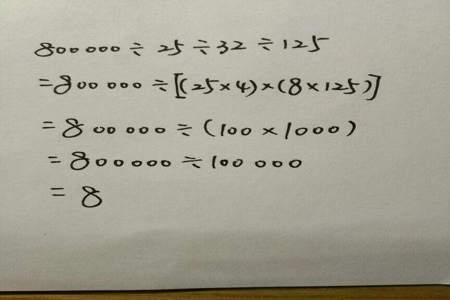 800000÷25÷32÷125
=800000÷[(25×4)×(8×125)]
=800000÷(100×1000)
=800000÷100000
=8